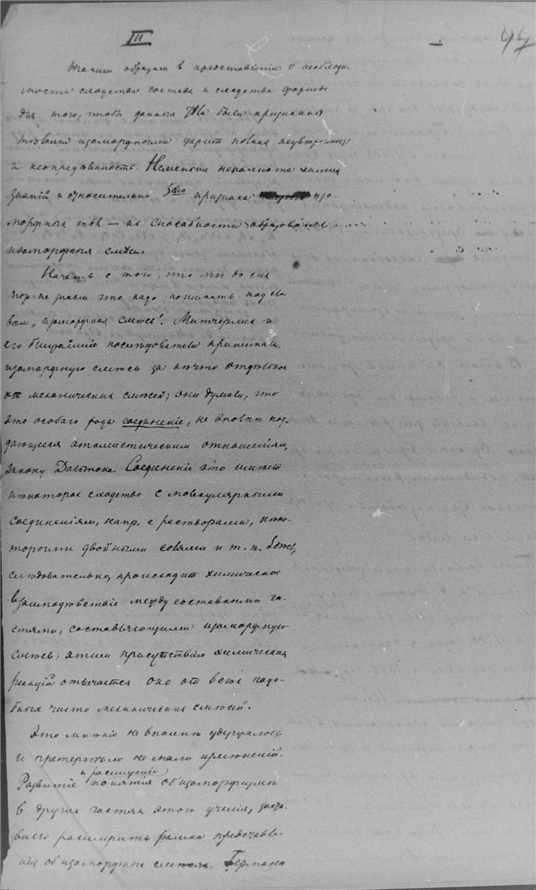 III
47
Таким образом в представлении о необходи-
мости сходства состава и сходства формы
для того, чтобы данныя тѣла были признаны
изоморфными царит полная
и неопредѣленность. Не менѣе неполнота наших
знаній и относительно 3го признака изо-
морфных тѣл — их способности образовывать
изоморфныя смѣси.
Начать с того, что мы до сих
пор не знаем что надо понимать под сло-
вом „изоморфная смѣсь". Митчерлих и
его ближайшіе послѣдователи принимали
изоморфную смѣсь за нѣчто отдѣльное
от механических смѣсей; они думали, что
это особаго рода соединеніе, не вполнѣ под-
дающееся атомистическим отношеніям,
закону Дальтона. Соединеніе это имѣет
нѣкоторое сходство с молекулярными
соединеніями, напр. с растворами, нѣко-
торыми двойными солями и т. п. Здѣсь,
слѣдовательно, происходит химическое
взаимодѣйствіе между составными ча-
стями, составляющими изоморфную
смѣсь; этим присутствіем химических
реакцій отличается оно от всѣх подо-
бных чисто механических смѣсей.
Это мнѣніе не вполнѣ удержалось
и претерпѣло не мало измѣненій.
Развитіе и расширеніе понятія об изоморфизмѣ
в других частях этого ученія, заста-
вило расширить рамки представле-
нія об изоморфных смѣсях. Германн